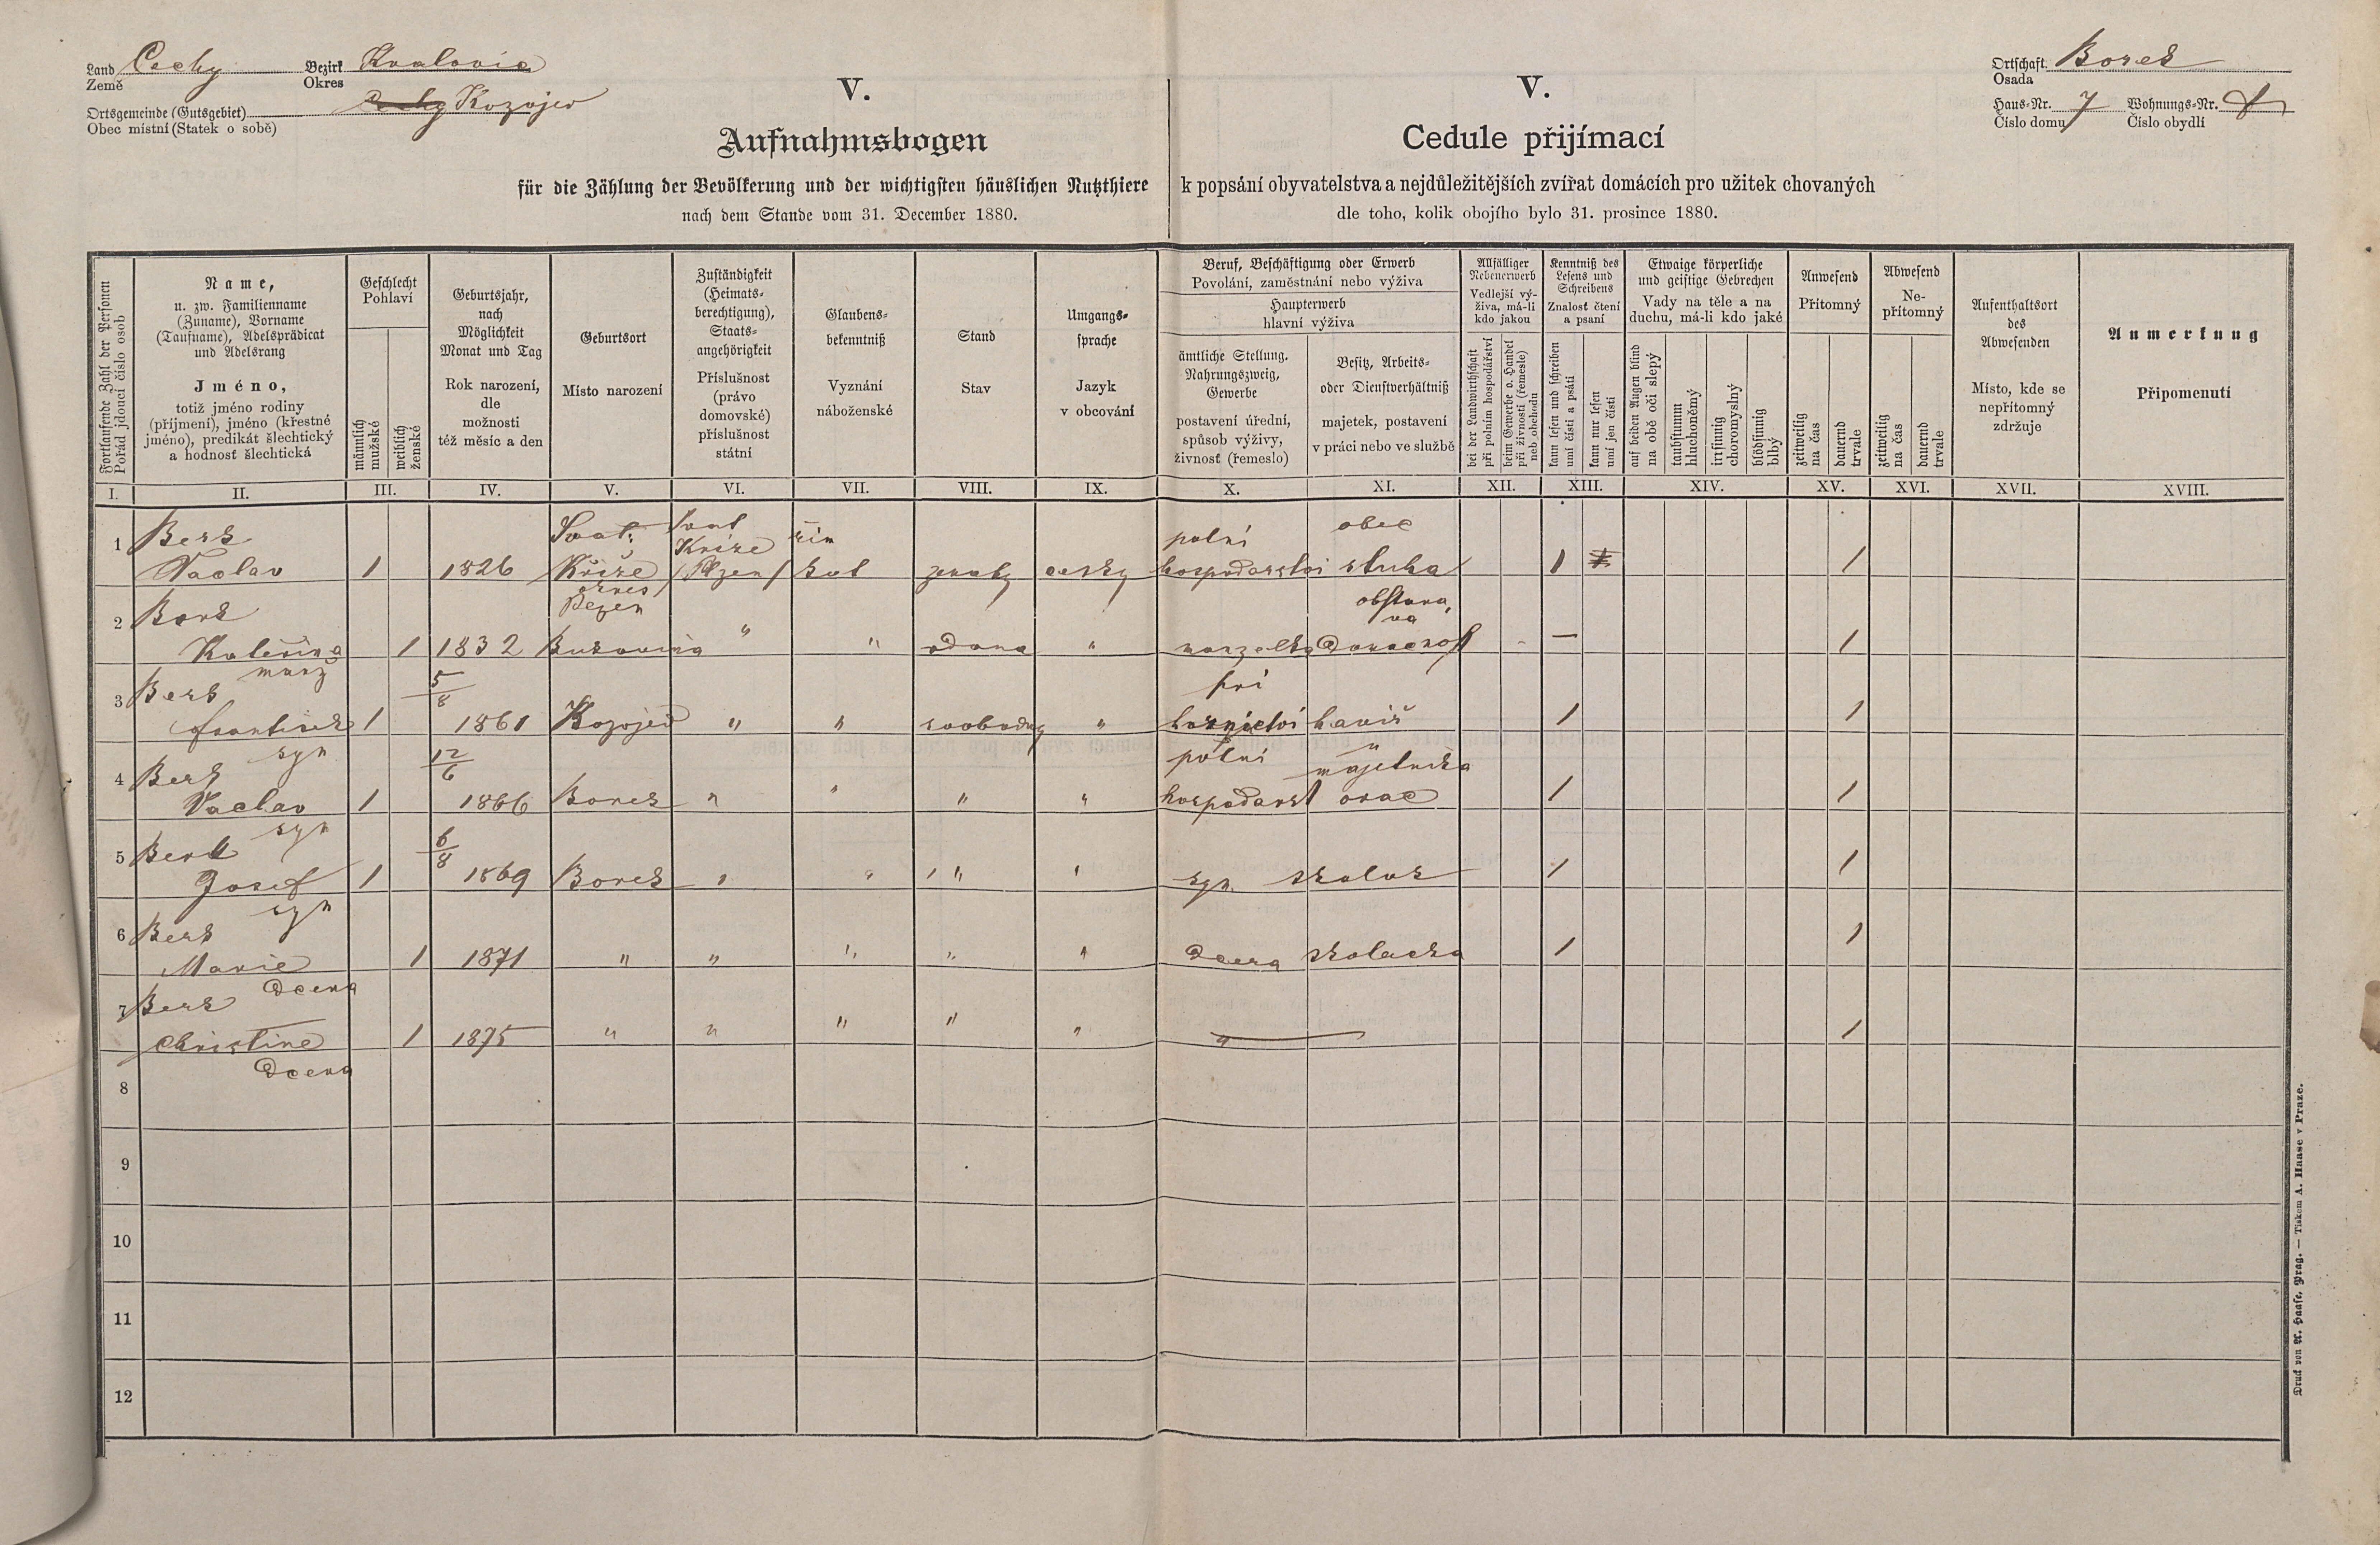 Land Čechy Bezirk Kralovic
Země Okres
Ortsgemeinde (Gutsgebiet) Kozojed
Obec místní (Statek o sobě)
V.
Aufnahmsbogen
für die Zählung der Bevölkerung und der wichtigsten häuslichen Nutzthiere
nach dem Stande vom 31. December 1880.
V.
Cedule přijímací
k popsání obyvatelstva a nejdůležitějších zvířat domácích pro užitek chovaných
dle toho, kolik obojího bylo 31. prosince 1880.
Ortschaft Borek
Osada
Haus-Nr. 7 Wohnungs-Nr.
Číslo domu Číslo obydlí
Fortlaufende Zahl der Personen
Pořád jdoucí číslo osob
Name,
u. zw. Familienname
(Zuname), Vorname
(Taufname), Adelsprädicat
und Adelsrang
Jméno,
totiž jméno rodiny
(příjmení), jméno (křestné
jméno), predikát šlechtický
a hodnosť šlechtická
Geschlecht
Pohlaví
männlich
mužské
weiblich
ženské
Geburtsjahr,
nach
Möglichkeit
Monat und Tag
Rok narození,
dle
možnosti
též měsíc a den
Geburtsort
Místo narození
Zuständigkeit
(Heimats-
berechtigung),
Staats-
angehörigkeit
Příslušnost
(právo
domovské)
příslušnost
státní
Glaubens-
bekenntniß
Vyznání
náboženské
Stand
Stav
Umgangs-
sprache
Jazyk
v obcování
Beruf, Beschäftigung oder Erwerb
Povolání, zaměstnání nebo výživa
Haupterwerb
hlavní výživa
ämtliche Stellung,
Nahrungszweig,
Gewerbe
postavení úřední,
spůsob výživy,
živnosť (řemeslo)
Besitz, Arbeits-
oder Dienstverhältniß
majetek, postavení
v práci nebo ve službě
Allfälliger
Nebenerwerb
Vedlejší vý-
živa, má-li
kdo jakou
bei der Landwirthschaft
při polním hospodářství
beim Gewerbe o. Handel
při živnosti (řemesle)
neb obchodu
Kenntniß des
Lesens und
Schreibens
Znalosť čtení
a psaní
kann lesen und schreiben
umí čísti a psáti
kann nur lesen
umí jen čísti
Etwaige körperliche
und geistige Gebrechen
Vady na těle a na
duchu, má-li kdo jaké
auf beiden Augen blind
na obě oči slepý
taubstumm
hluchoněmý
irrsinnig
choromyslný
blödsinnig
blbý
Anwesend
Přítomný
zeitweilig
na čas
dauernd
trvale
Abwesend
Ne-
přítomný
zeitweilig
na čas
dauernd
trvale
Aufenthaltsort
des
Abwesenden
Místo, kde se
nepřítomný
zdržuje
Anmerkung
Připomenutí
I. II. III. IV. V. VI. VII. VIII. IX. X. XI. XII. XIII. XIV. XV. XVI. XVII. XVIII.
1 Berk Svat. Svat Kříže řím polní obec
Vaclav 1 1826 Kříže okres Plzen /Plzen/ kat ženatý česky hospodarstvi sluha 1 1
2 Berk obstara,va
Kateřina manž 1 1832 Bukovina " " vdana " manzelka domacnost – 1
3 Berk 5/8 při
František syn 1 1861 Kozojed " " svobodny " hornictvi haviř 1 1
4 Berk 12/6 polni u majetnika
Vaclav syn 1 1866 Borek " " " " hospodarst orač 1 1
5 Berk 6/8
Josef syn 1 1869 Borek " " " " syn skolak 1 1
6 Berk
Marie Dcera 1 1871 " " " " " Dcera skolacka 1 1
7 Berk
Christine Dcera 1 1875 " " " " " " 1
8
9
10
11
12
Druck von A. Haase, Prag. — Tiskem A. Haase v Praze.